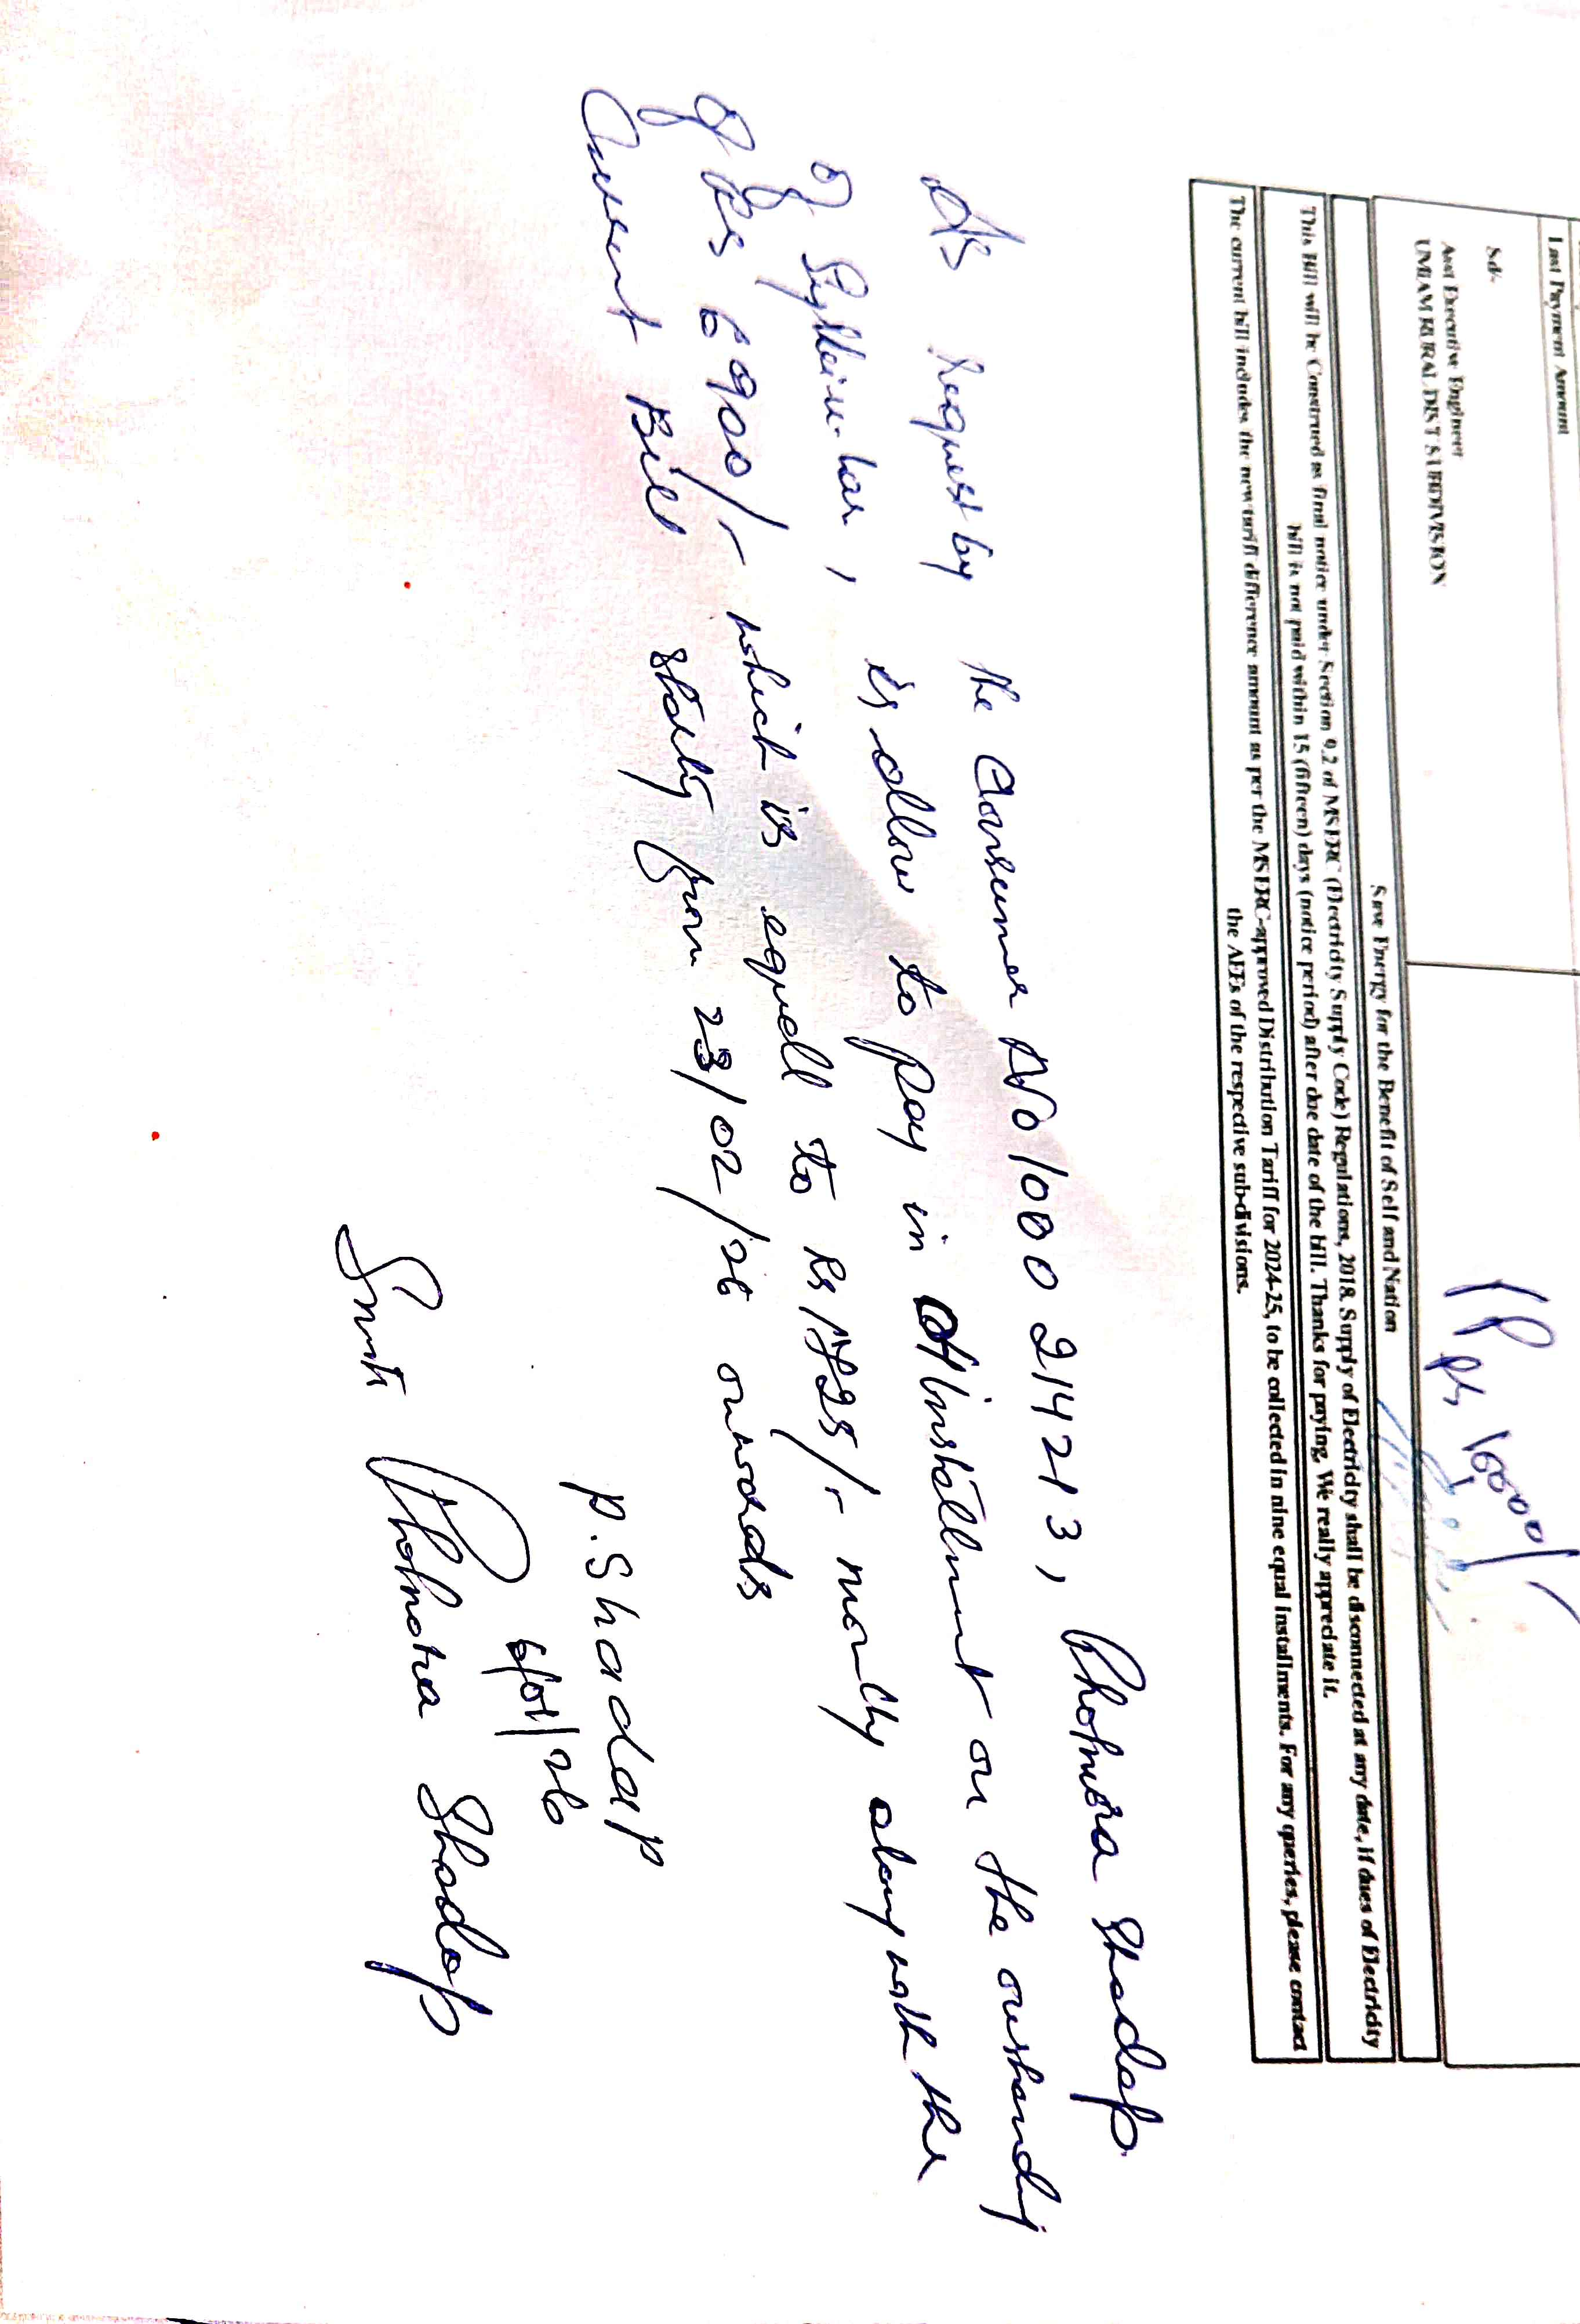 Last Payment Amount
Sd/-
Asst Executive Engineer
UMIAM RURAL DIST SUBDIVISION
Save Energy for the Benefit of Self and Nation
This Bill will be Construed as final notice under Section 9.2 of MSERC (Electricity Supply Code) Regulations, 2018. Supply of Electricity shall be disconnected at any date, if dues of Electricity
bill is not paid within 15 (fifteen) days (notice period) after due date of the bill. Thanks for paying. We really appreciate it.
The current bill includes the new tariff difference amount as per the MSERC-approved Distribution Tariff for 2024-25, to be collected in nine equal installments. For any queries, please contact
the AEEs of the respective sub-divisions.
As request by the Consumer No 1000214213, Phomera Shadap
of is allow to pay in installment on the outstanding
of Rs 6900/- which is equell to Rs 1725/- montly alongwith the
Current Bill stating from 23/02/26 onwards
P. Shadap
6/01/26
Smti Phomera Shadap